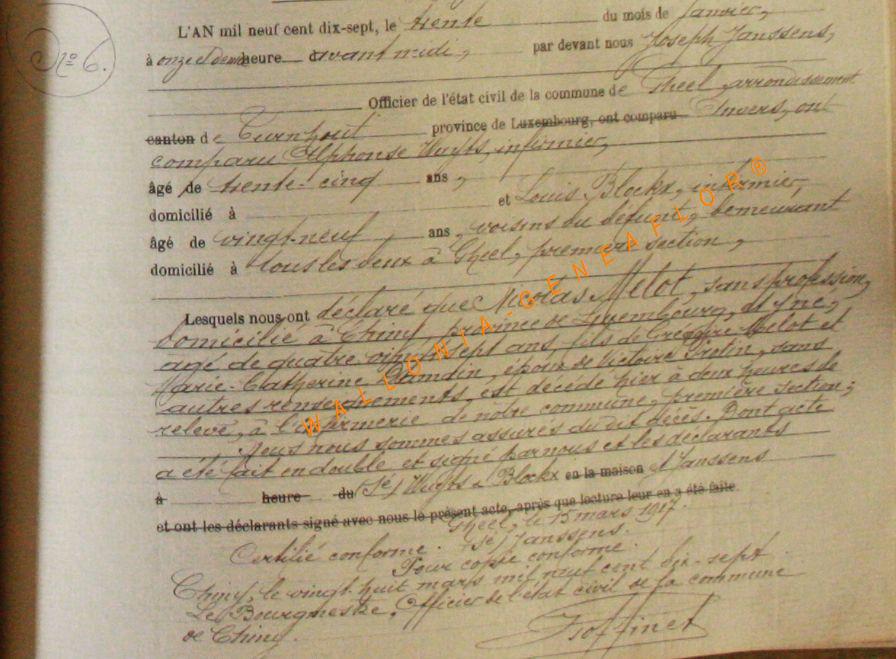 N° 6.
L'AN mil neuf cent dix-sept, le trente du mois de Janvier,
à onze et demie heure avant midi, par devant nous Joseph Janssens,
Officier de l'état civil de la commune de Gheel, arrondissement
canton de Turnhout province de Luxembourg, ont comparu Anvers, ont
comparu Alphonse Wuyts, infirmier,
âgé de trente-cinq ans,
domicilié à et Louis Blockx, infirmier
âgé de vingt-neuf ans, voisins du défunt, demeurant
domicilié à tous les deux à Gheel, première section,
Lesquels nous ont déclaré que Nicolas Melot, sans profession,
domicilié à Chiny, province de Luxembourg, et y né,
âgé de quatre vingt sept ans, fils de Grégoire Melot et
Marie-Catherine, époux de Victoire, sans
autres renseignements, est décédé hier à deux heures de
relevé, à l'infirmerie de notre commune, première section;
Nous nous sommes assurés du dit décès. Dont acte
a été fait en double et signé par nous et les déclarants
à heure du (Sé) Wuyts & Blockx en la maison et Janssens
et ont les déclarants signé avec nous le présent acte, après que lecture leur en a été faite.
Gheel, le 15 mars 1917
Certifié conforme. sé) Janssens.
Pour copie conforme.
Chiny, le vingt huit mars mil neuf cent dix-sept
Le Bourgmestre, Officier de l'état civil de la commune
de Chiny.
WALLONIA-GENEAFLOR®